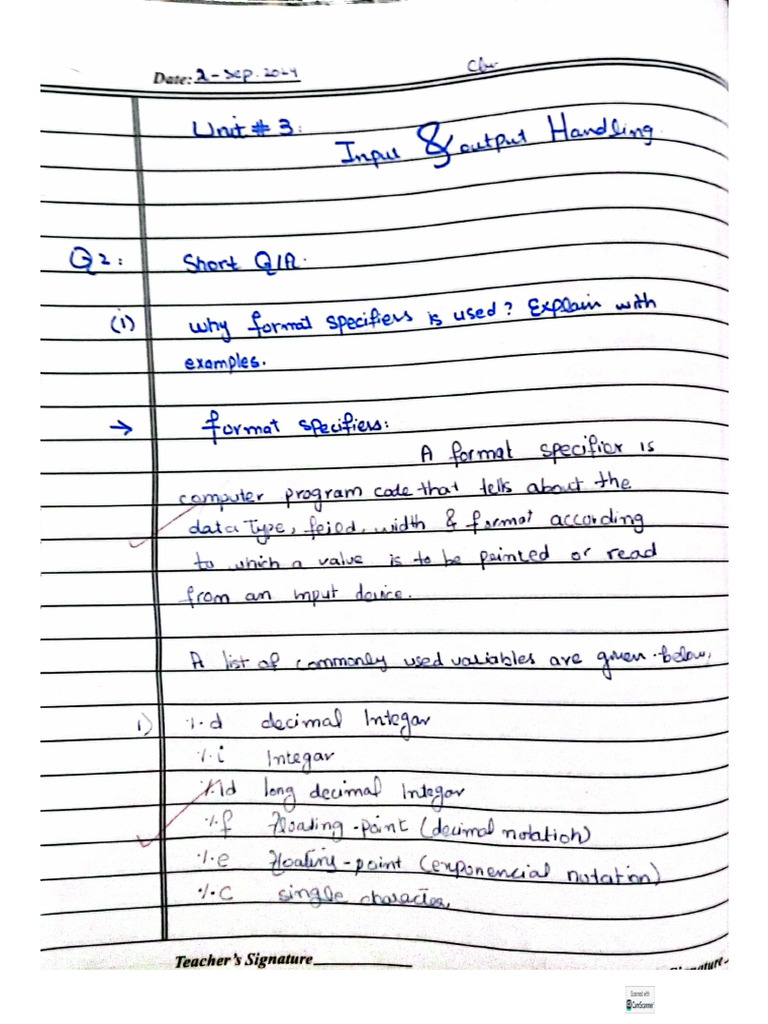 Date: 2-Sep.2024
Unit # 3:
Input & output Handling.
Q2: Short Q/A.
(i) why format specifiers is used? Explain with
examples.
→ format specifiers:
A format specifier is
computer program code that tells about the
data type, feild, width & format according
to which a value is to be printed or read
from an input device.
A list of commonly used variables are given below.
i) %d decimal Integar
%i Integar
%ld long decimal Integar
%f floating-point (decimal notation)
%e floating-point (exponencial notation)
%c single character,
Teacher's Signature
Signature
Scanned with
CamScanner